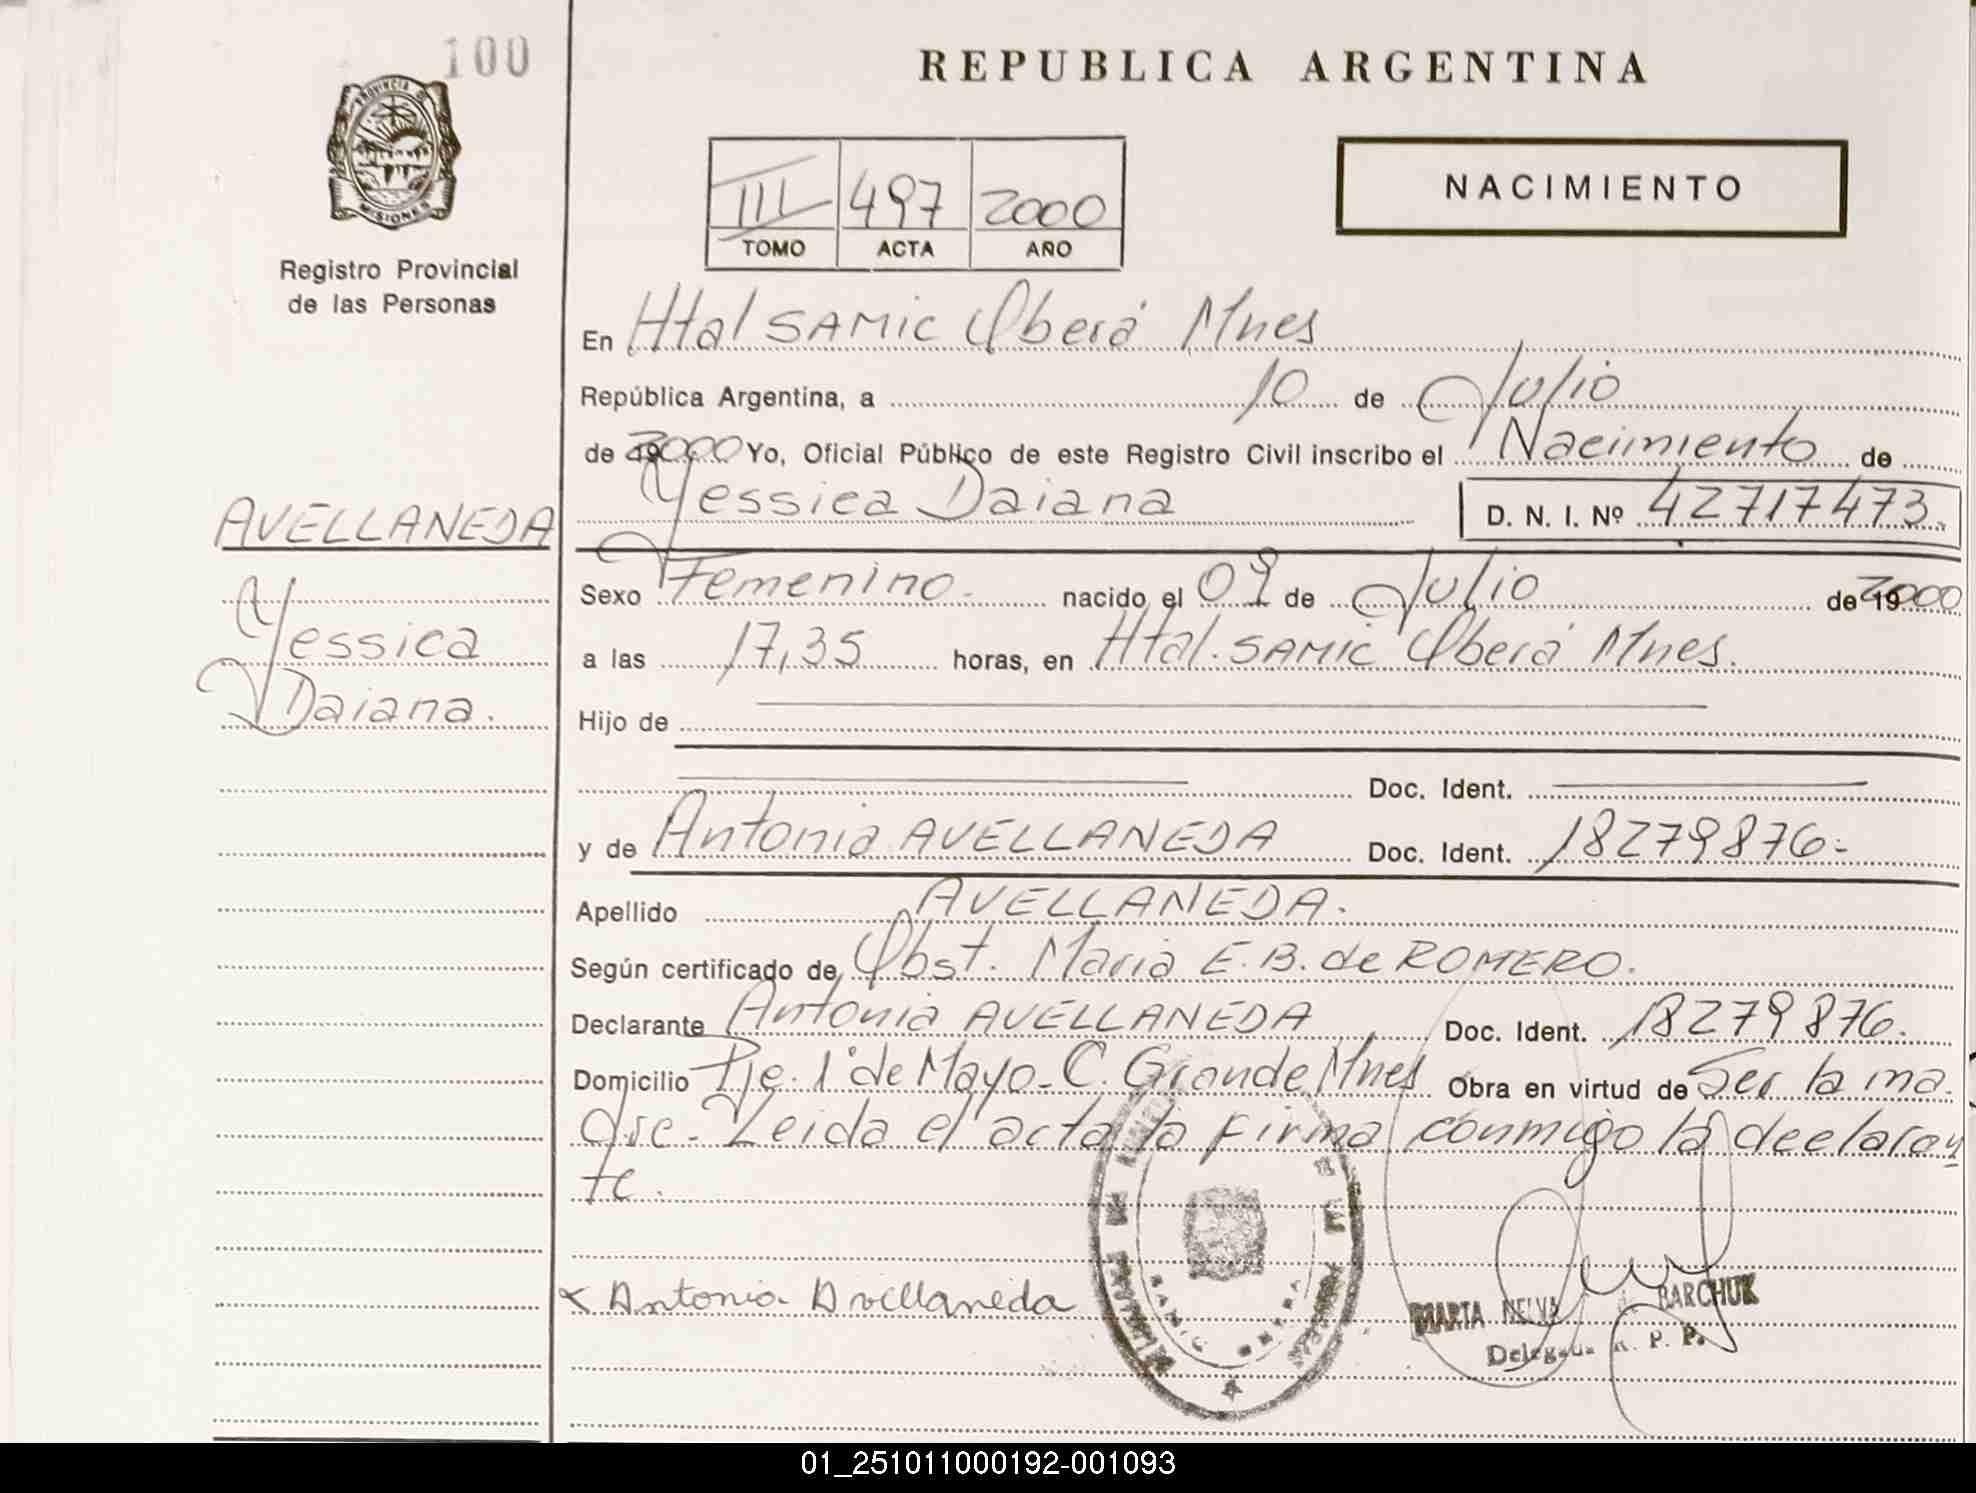 100
PROVINCIA DE
MISIONES
Registro Provincial
de las Personas
REPUBLICA ARGENTINA
III 497 2000
TOMO ACTA AÑO
NACIMIENTO
En Htal SAMIC Oberá Mnes
República Argentina, a 10 de Julio
de 2000 Yo, Oficial Público de este Registro Civil inscribo el Nacimiento de
Yessica Daiana D. N. I. Nº 42717473.
AVELLANEDA
Yessica
Daiana.
Sexo Femenino. nacido el 09 de Julio de 2000
a las 17,35 horas, en Htal. SAMIC Oberá Mnes.
Hijo de
Doc. Ident.
y de Antonia AVELLANEDA Doc. Ident. 18279876.
Apellido AVELLANEDA.
Según certificado de Obst. Maria E. B. de ROMERO.
Declarante Antonia AVELLANEDA Doc. Ident. 18279876.
Domicilio Pje. 1º de Mayo. C. Grande Mnes Obra en virtud de Ser la ma-
dre. Leida el acta la firma conmigo la declaran
te.
x Antonia Avellaneda
MARTA NELVA BARCHUK
Delegada R. P. P.
SAMIC OBERA
01_251011000192-001093